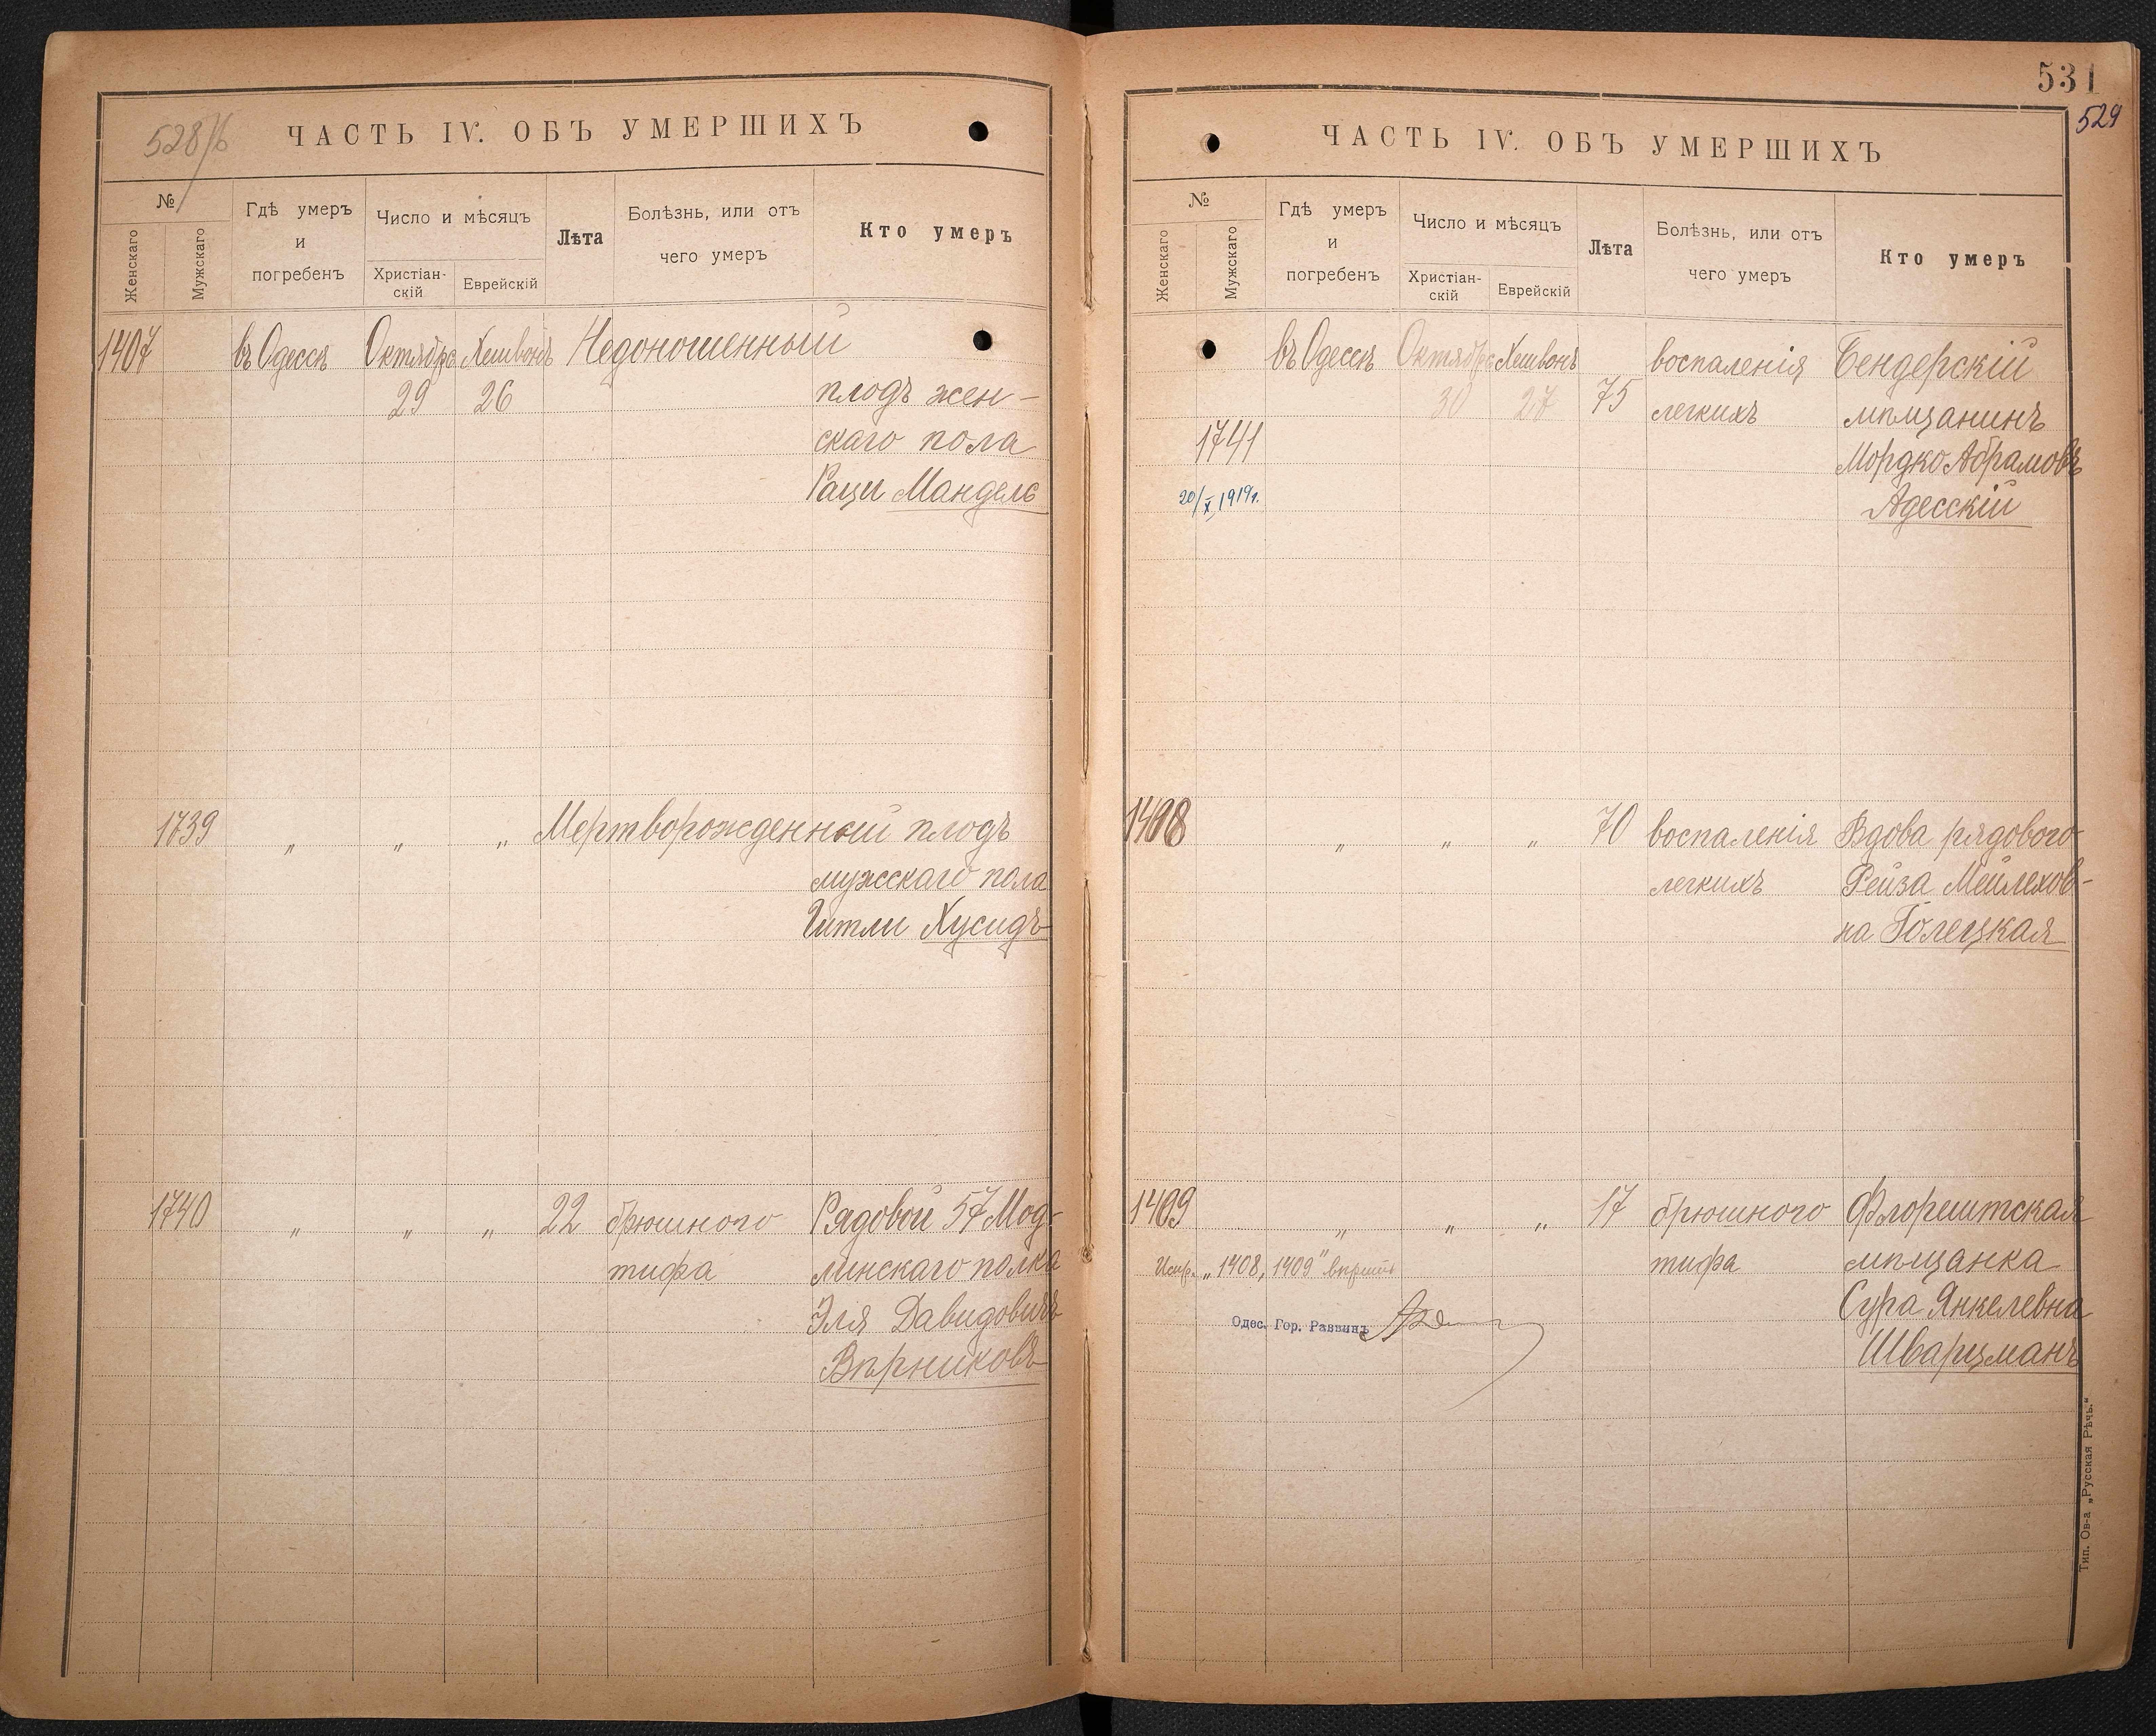 528/б
ЧАСТЬ IV. ОБЪ УМЕРШИХЪ
№
Женскаго
Мужскаго
Гдѣ умеръ
и
погребенъ
Число и мѣсяцъ
Христіан-
скій
Еврейскій
Лѣта
Болѣзнь, или отъ
чего умеръ
Кто умеръ
1407 въ Одессѣ Октября Хешвонъ Недоношенный
29 26 плодъ жен-
скаго пола
Раци Мандель
1739 „ „ „ Мертворожденный плодъ
мужскаго пола
Гитли Хусидъ
1740 „ „ „ 22 брюшного Рядовой 57 Мод-
тифа линскаго полка
Эля Давидовичъ
Вѣрниковъ
531
529
ЧАСТЬ IV. ОБЪ УМЕРШИХЪ
№
Женскаго
Мужскаго
Гдѣ умеръ
и
погребенъ
Число и мѣсяцъ
Христіан-
скій
Еврейскій
Лѣта
Болѣзнь, или отъ
чего умеръ
Кто умеръ
въ Одессѣ Октября Хешвонъ воспаленія Бендерскій
30 27 75 легкихъ мѣщанинъ
1741 Мордко Абрамовъ
20/X 1919г. Адесскій
1408 „ „ „ 70 воспаленія Вдова рядового
легкихъ Рейза Мейлехов-
на Голецкая
1409 „ „ „ 17 брюшного Флорештская
Испр. „1408, 1409" вѣрить тифа мѣщанка
Одес. Гор. Раввинъ Сура Янкелевна
Шварцманъ
Тип. Ов-а „Русская Рѣчь."